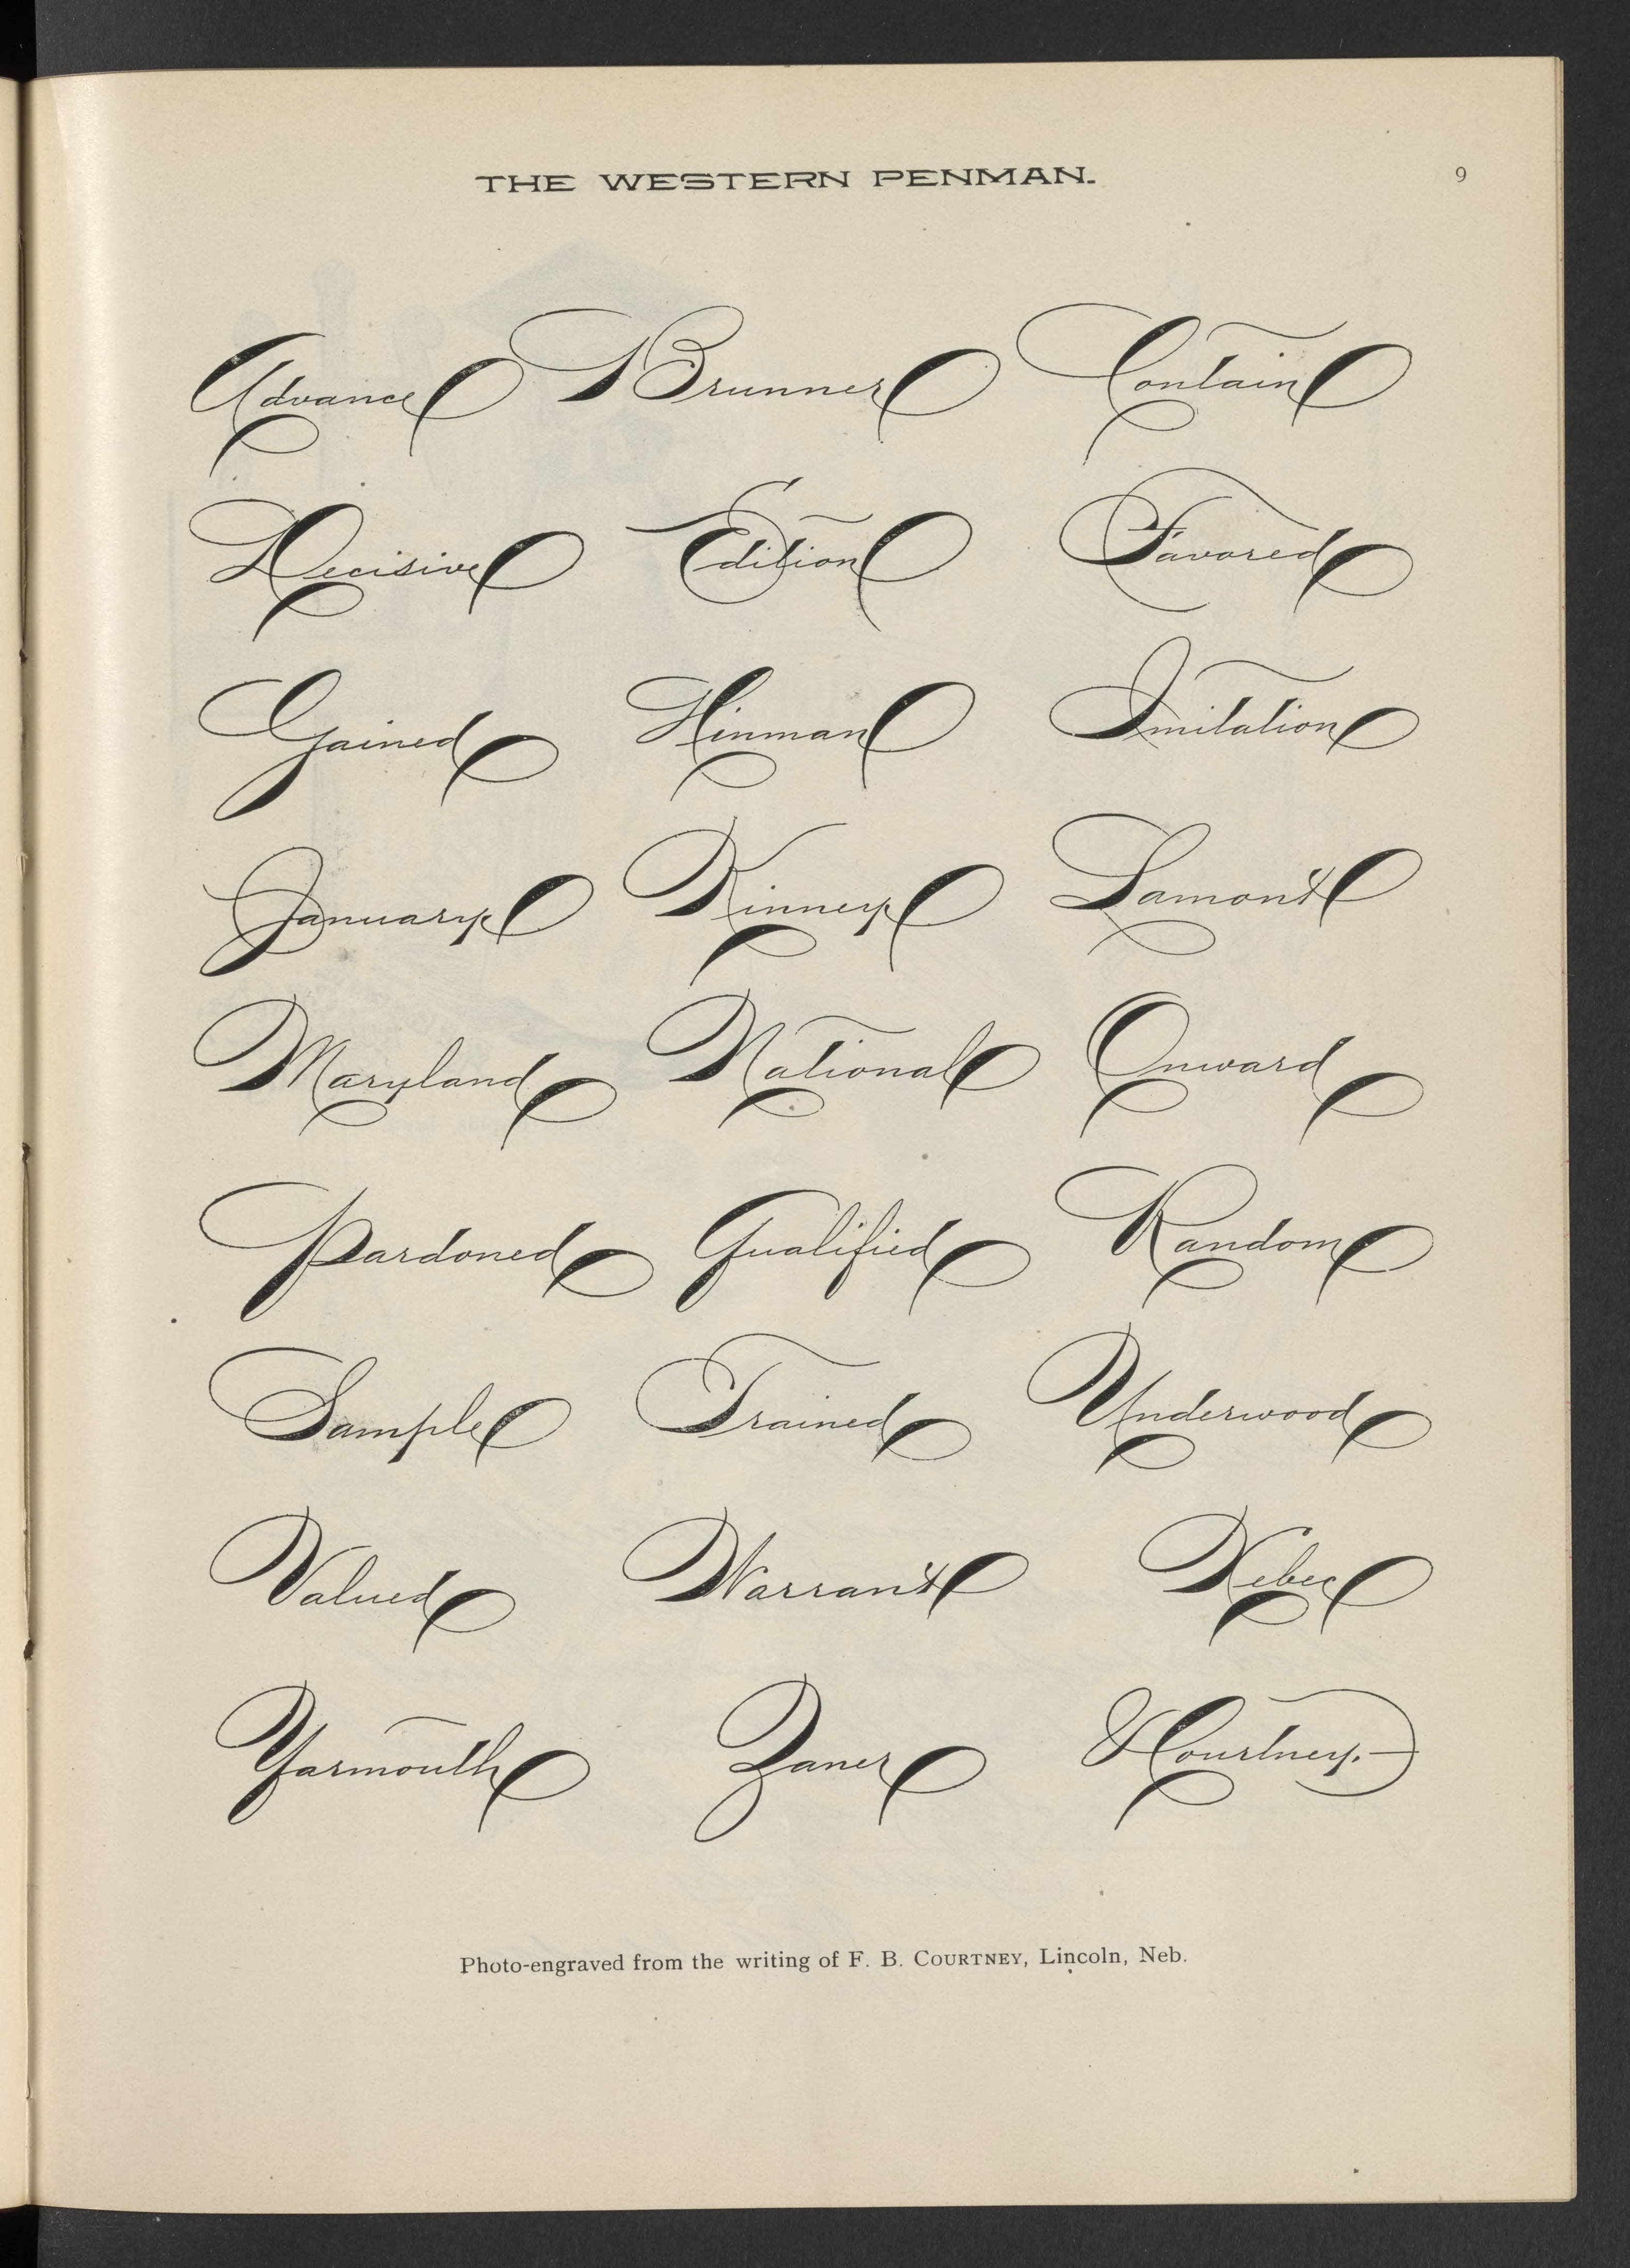 THE WESTERN PENMAN. 9
Advance Brunner Contain
Decisive Edition Favored
Gained Hinman Imitation
January Kinney Lamont
Maryland National Onward
Pardoned Qualified Random
Sample Trained Underwood
Valued Warrant Xebec
Yarmouth Zaner & Courtney.
Photo-engraved from the writing of F. B. COURTNEY, Lincoln, Neb.